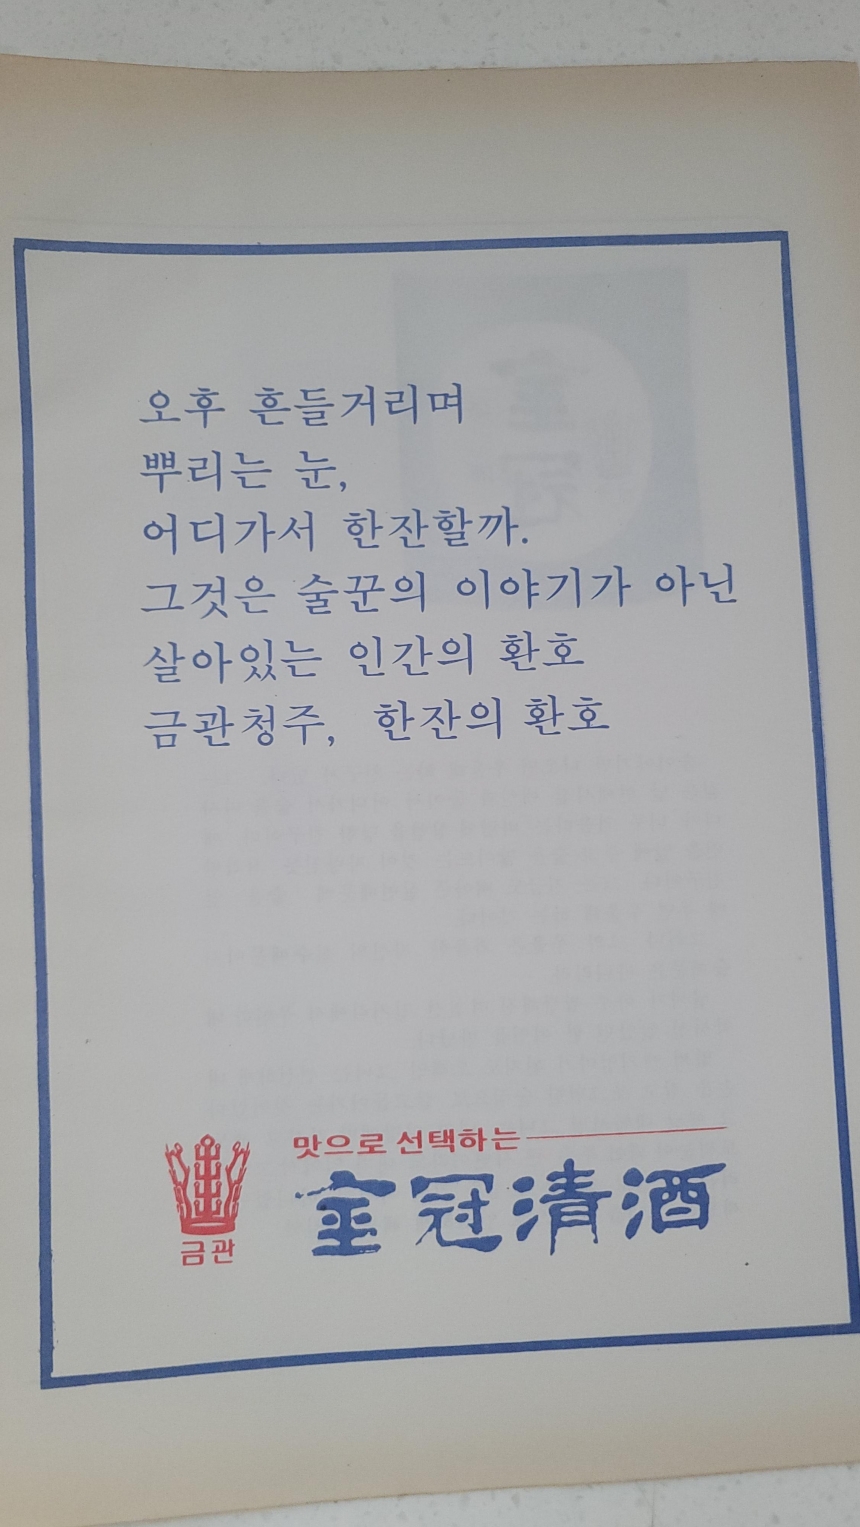 오후 흔들거리며
뿌리는 눈,
어디가서 한잔할까.
그것은 술꾼의 이야기가 아닌
살아있는 인간의 환호
금관청주, 한잔의 환호
맛으로 선택하는
金冠清酒
금관